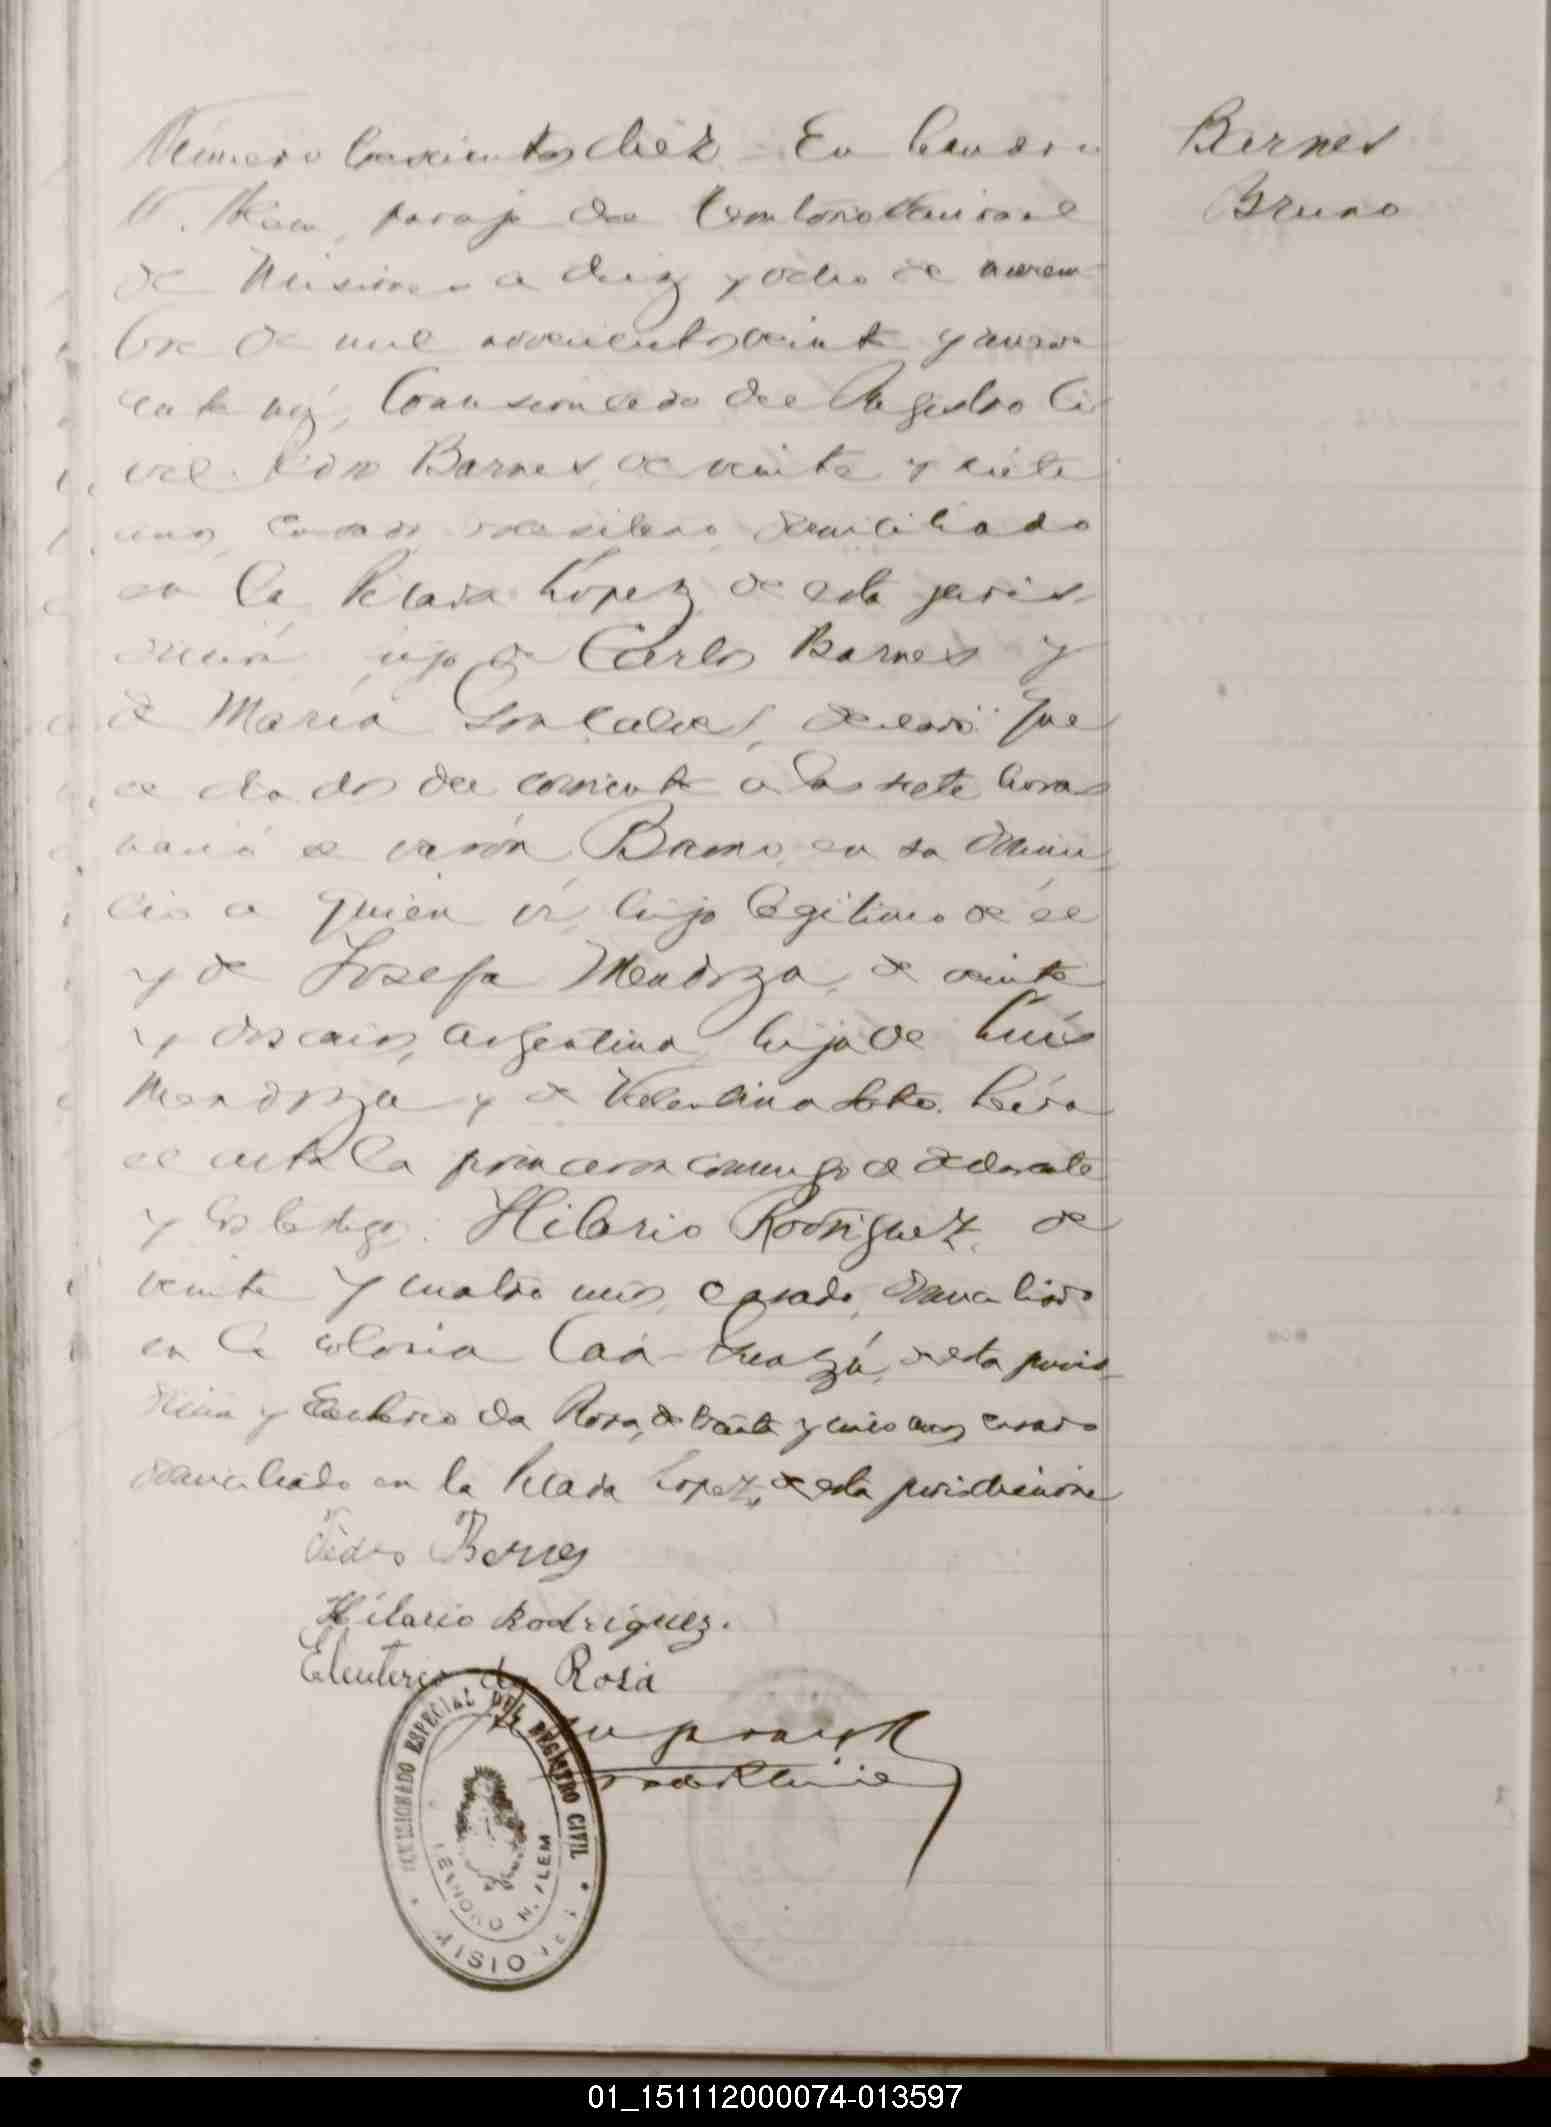 Número trescientos diez - En Leandro
N. Alem, paraje del Territorio Nacional
de Misiones a diez y ocho de noviem-
bre de mil novecientos veinte y nueve
ante mí, Comisionado del Registro Ci-
vil. Pedro Barnes, de veinte y siete
años, casado, brasilero, domiciliado
en la Picada López, de esta juris-
dicción, hijo de Carlos Barnes y
de María Goncalves, declaró: Que
el día dos del corriente a las siete horas
nació el varón Bruno, en su domici-
lio a quien ví, hijo legítimo de él
y de Josefa Mendoza, de veinte
y dos años, argentina, hija de Luís
Mendoza y de Valentina Soto. Leída
el acta la firmaron conmigo el declarante
y los testigos: Hilario Rodríguez, de
veinte y cuatro años, casado, domiciliado
en la colonia Caá-Guazú, de esta juris-
dicción y Eleuterio da Rosa, de treinta y cinco años, casado
domiciliado en la Picada López, de esta jurisdicción
Pedro Bernes
Hilario Rodriguez.
Eleuterio da Rosa
COMISIONADO ESPECIAL DEL REGISTRO CIVIL
LEANDRO N. ALEM
MISIONES
Barnes
Bruno
01_151112000074-013597